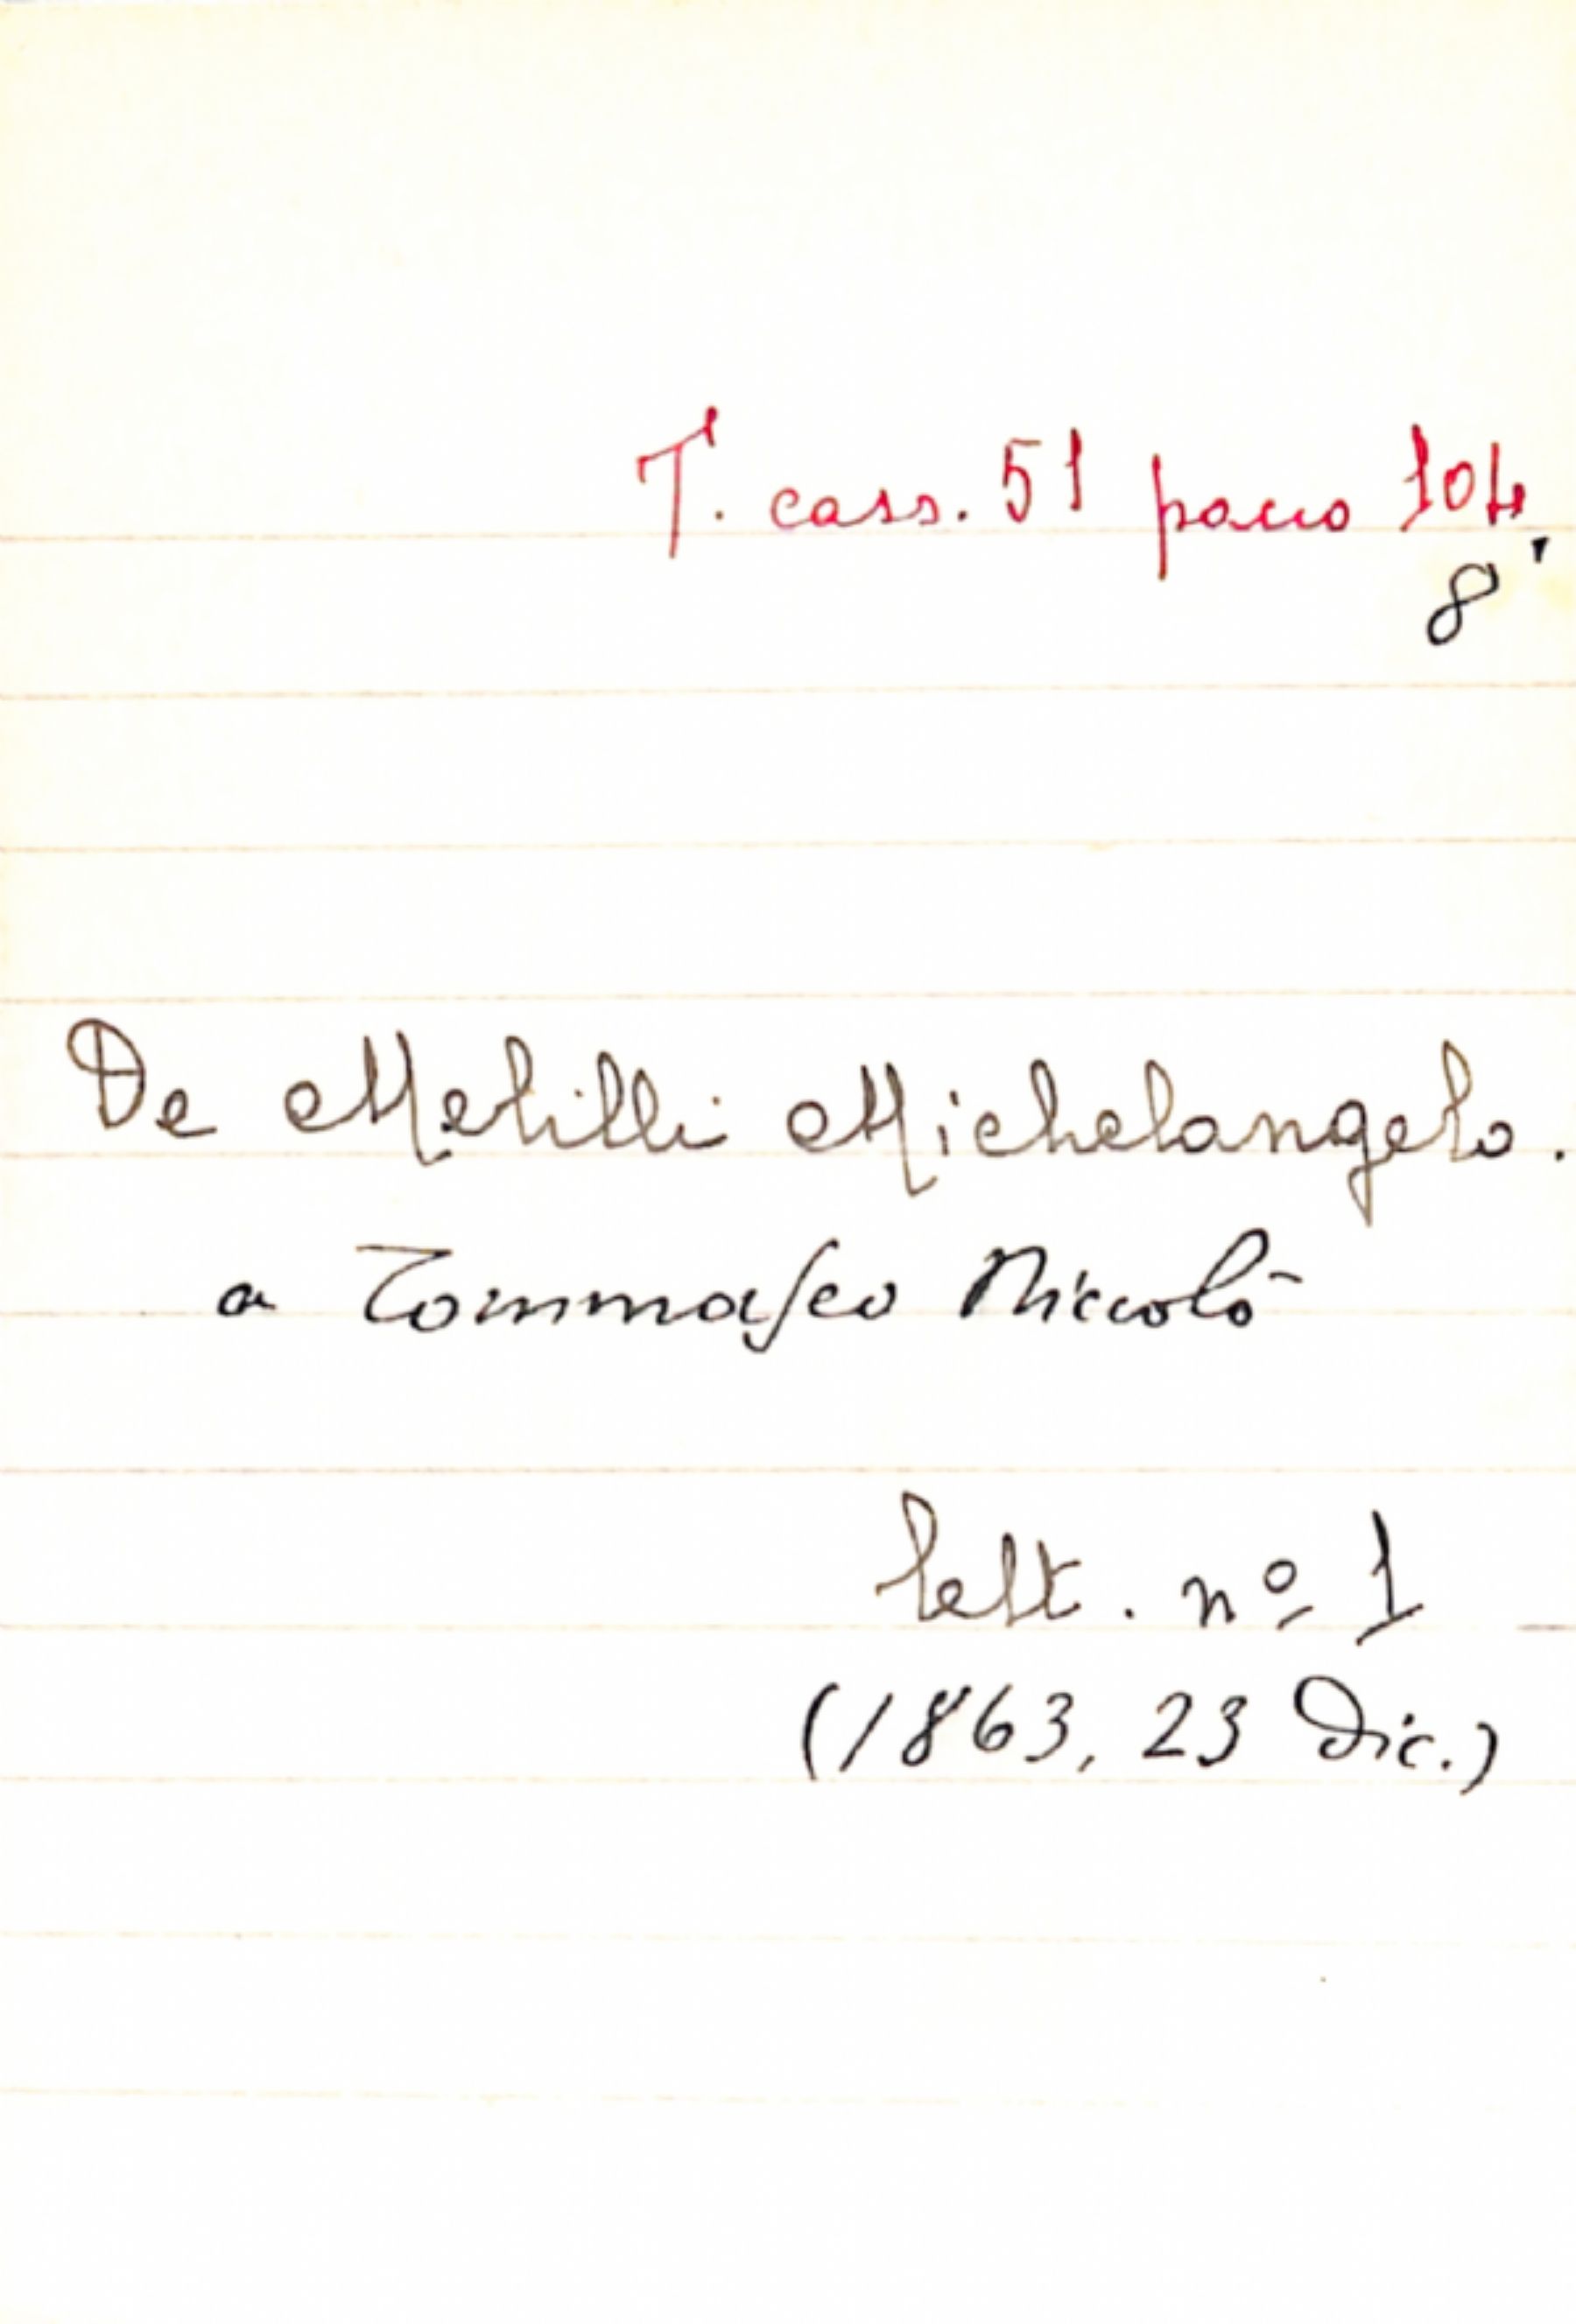 T. cass. 51 pacco 104
8'
De Melilli Michelangelo.
a Tommaseo Niccolò
lett. nº 1
(1863, 23 Dic.)